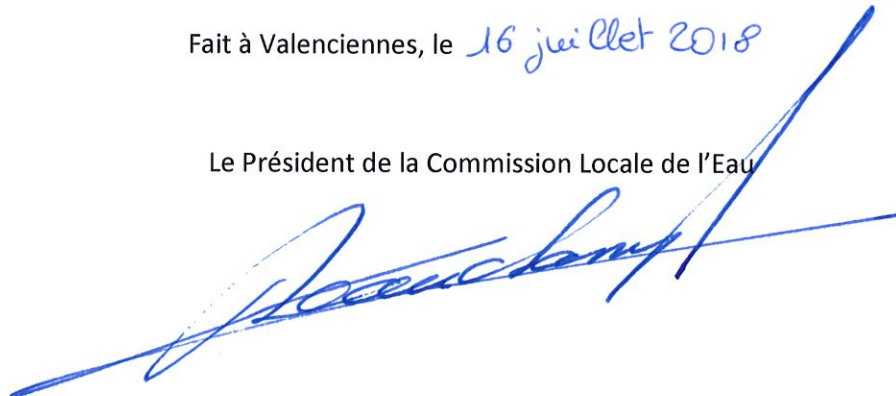 Fait à Valenciennes, le 16 juillet 2018
Le Président de la Commission Locale de l'Eau